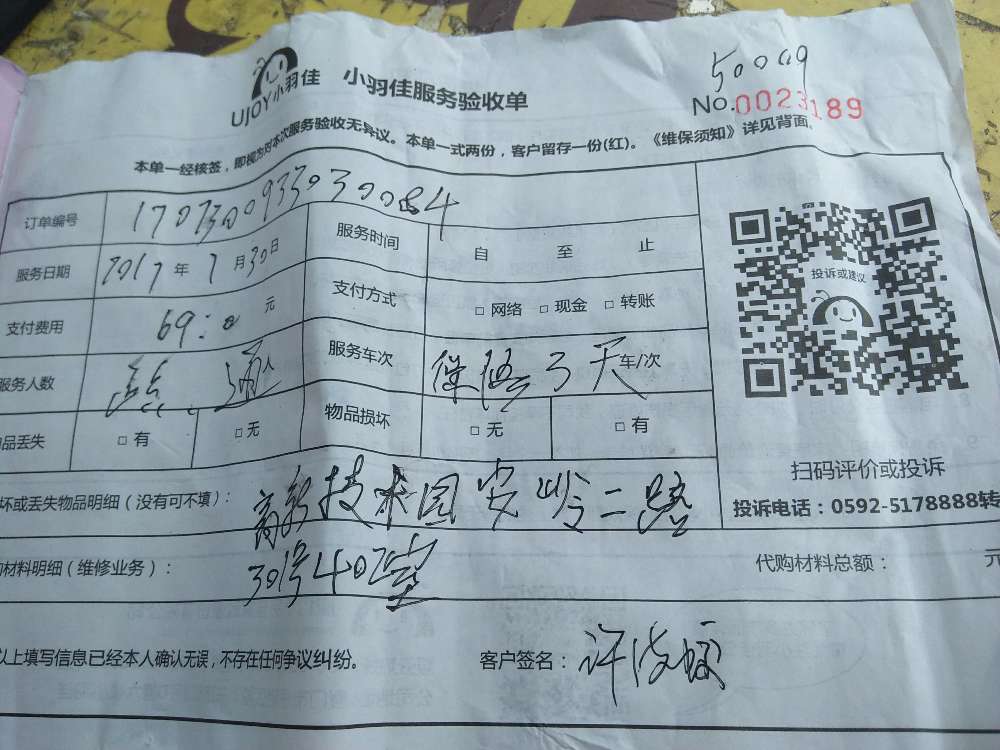 UJOY小羽佳 小羽佳服务验收单
50009
No.0023189
本单一经核签，即视为对本次服务验收无异议。本单一式两份，客户留存一份(红)。《维保须知》详见背面。
订单编号 17073009330300084
服务日期 2017年7月30日 服务时间 自 至 止
支付费用 69:0元 支付方式 □网络 □现金 □转账
服务人数 通人 服务车次 保修三个天车/次
品丢失 □有 □无 物品损坏 □无 □有
投诉或建议
扫码评价或投诉
投诉电话：0592-5178888转
坏或丢失物品明细（没有可不填）： 高新技术园安岭二路
材料明细（维修业务）： 301号402室 代购材料总额： 元
以上填写信息已经本人确认无误，不存在任何争议纠纷。 客户签名： 许